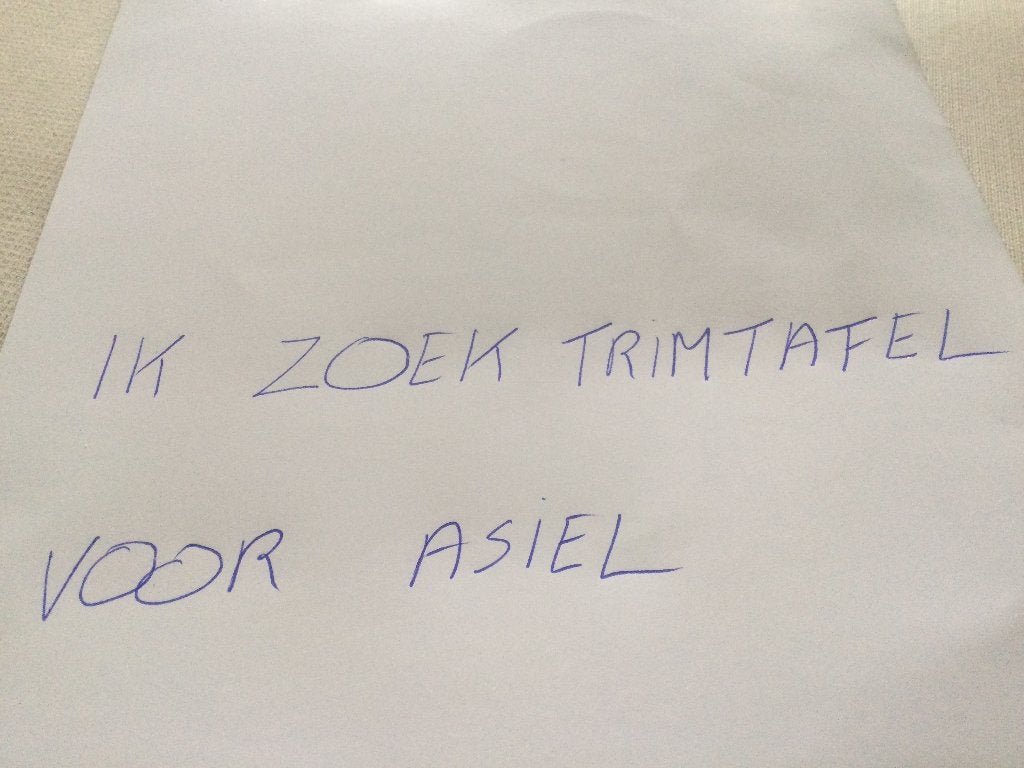 IK ZOEK TRIMTAFEL
VOOR ASIEL